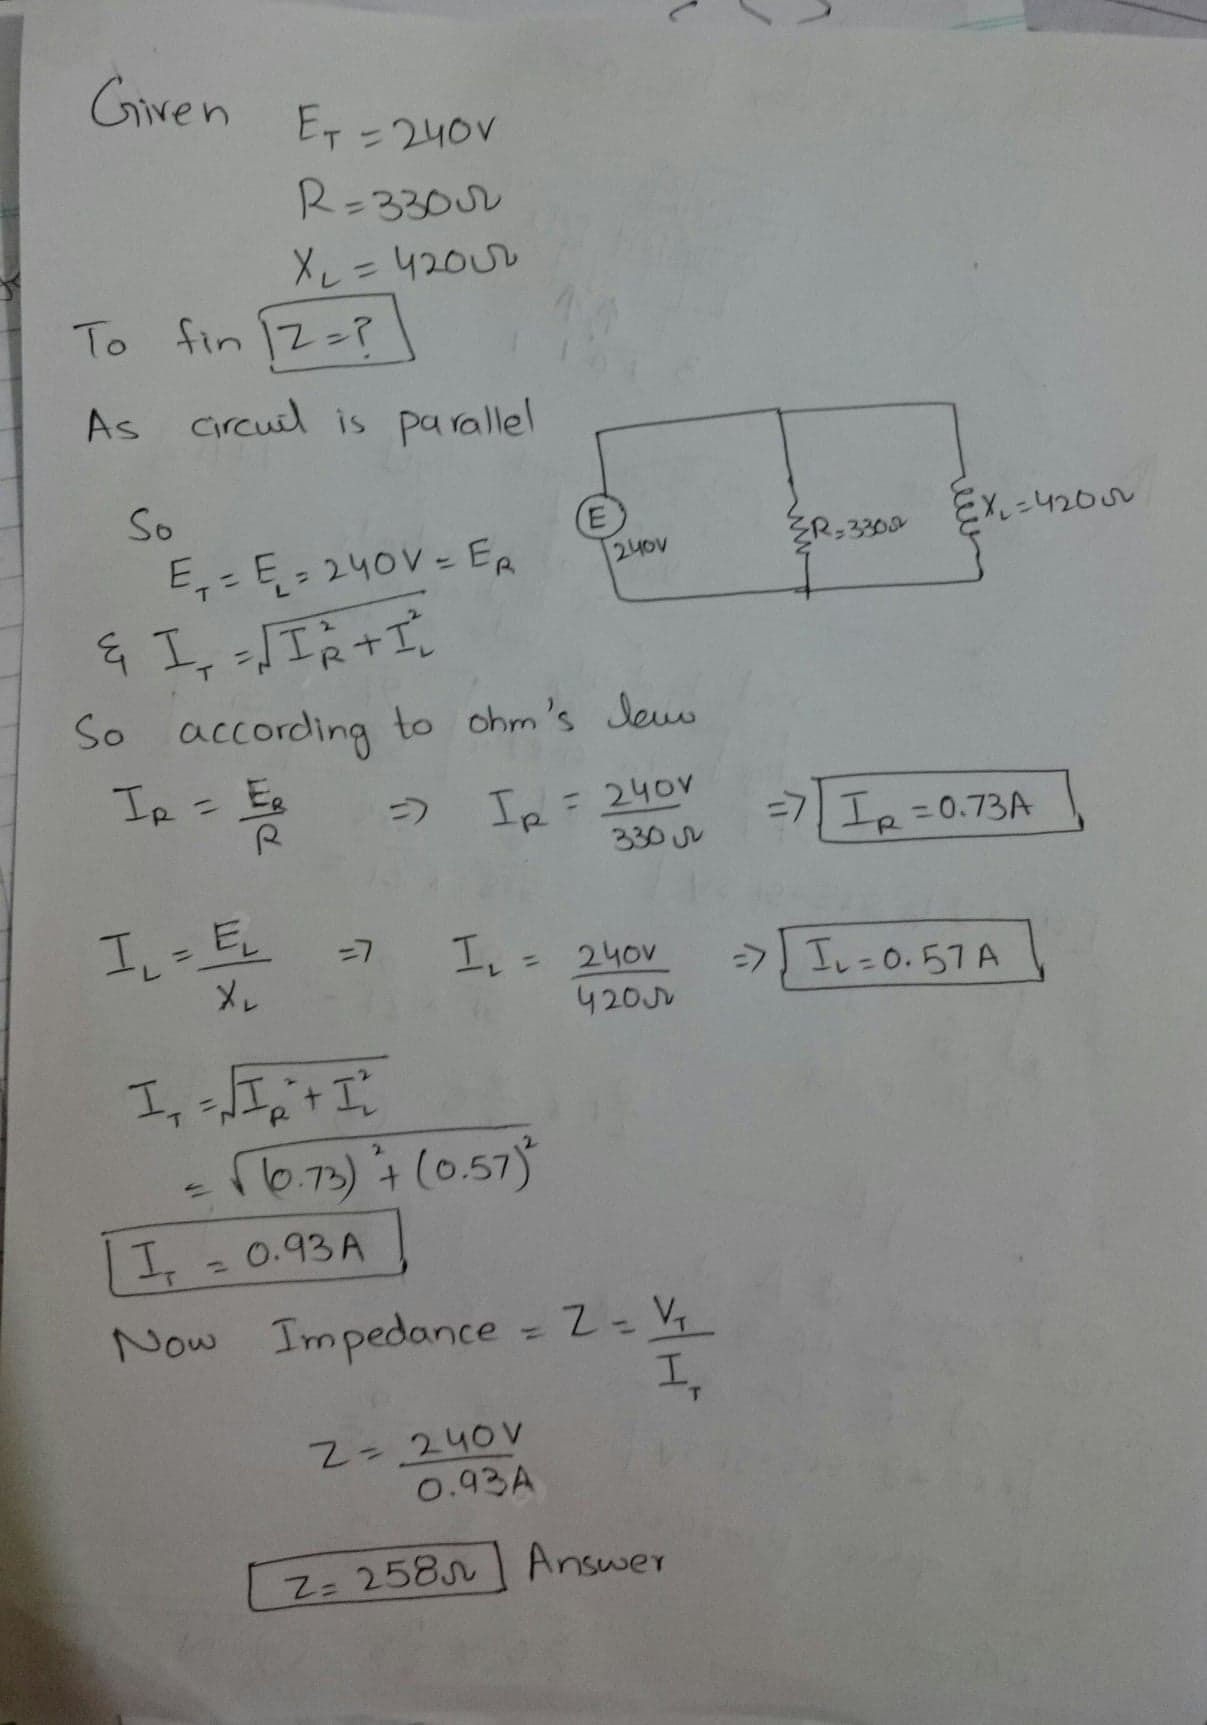 Given
E_T = 240V
R = 330Ω
X_L = 420Ω
To fin Z = ?
As circuit is parallel
So
E_T = E_L = 240V = E_R
E
240V
R = 330Ω
X_L = 420Ω
& I_T = √I_R² + I_L²
So according to ohm's law
I_R = E_R/R => I_R = 240V/330Ω => I_R = 0.73A
I_L = E_L/X_L => I_L = 240V/420Ω => I_L = 0.57A
I_T = √I_R² + I_L²
= √(0.73)² + (0.57)²
I_T = 0.93A
Now Impedance = Z = V_T/I_T
Z = 240V/0.93A
Z = 258Ω Answer